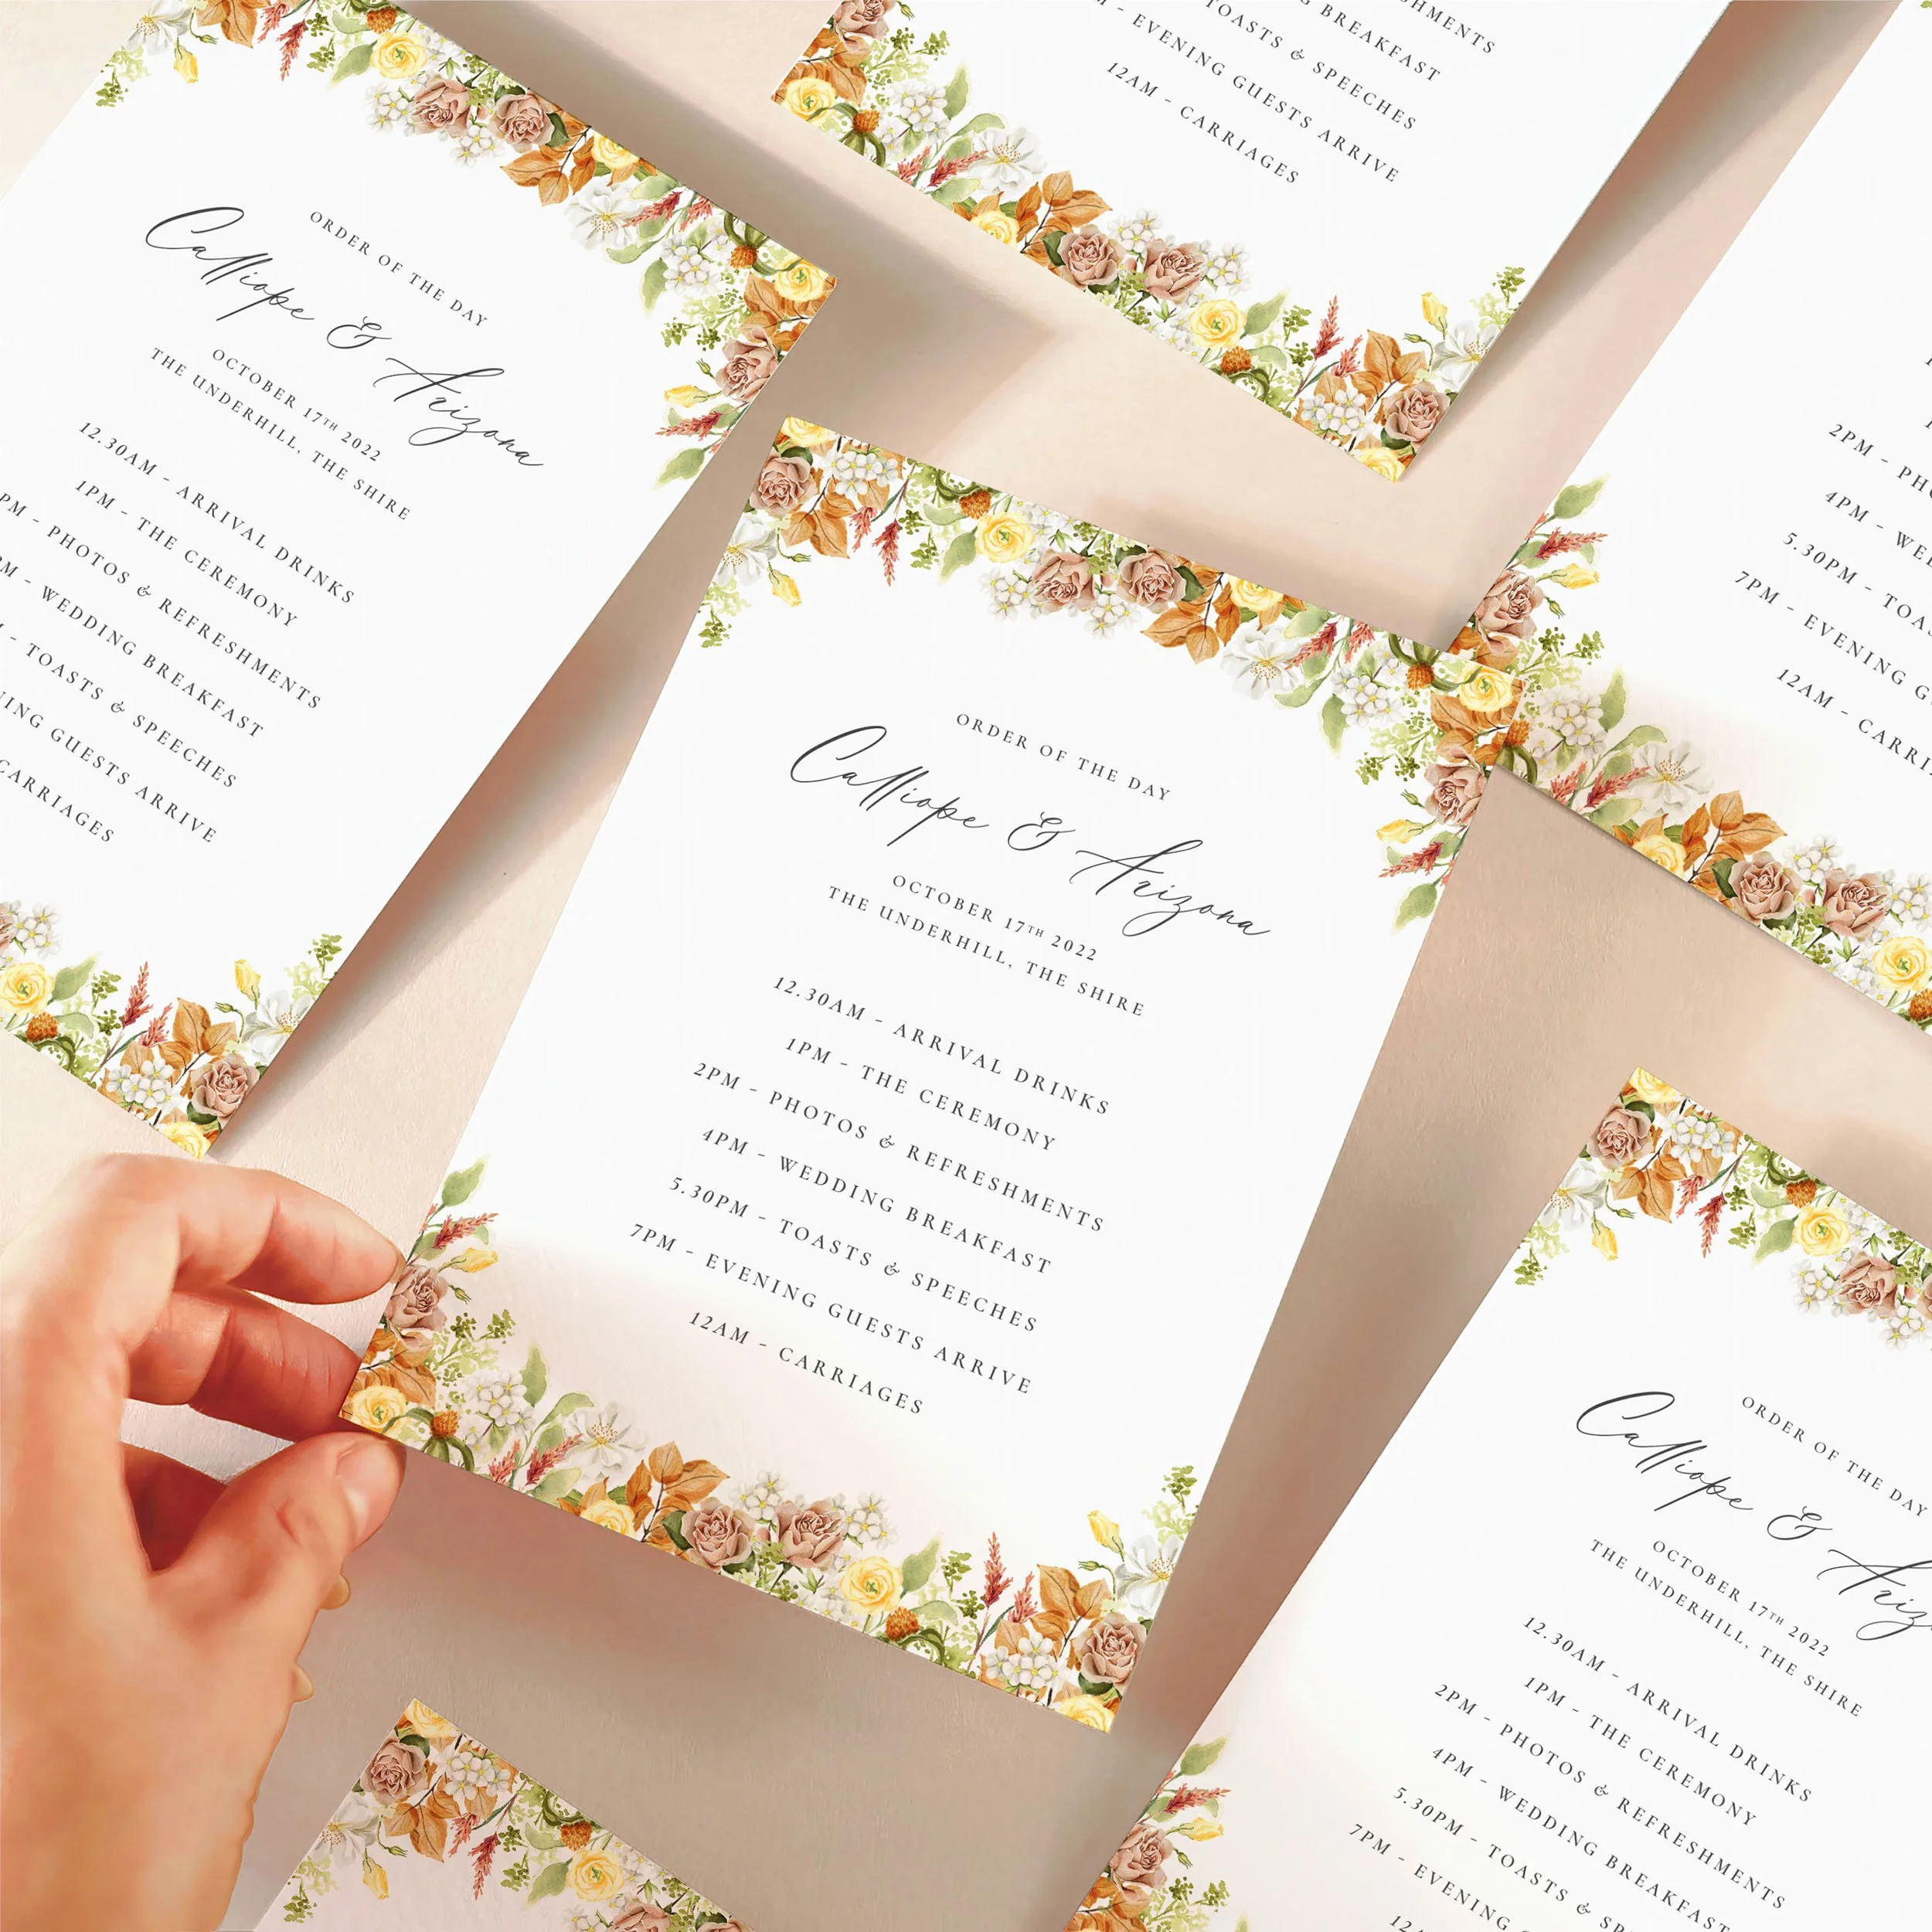 ORDER OF THE DAY
Calliope & Arizona
OCTOBER 17TH 2022
THE UNDERHILL, THE SHIRE
12.30AM - ARRIVAL DRINKS
1PM - THE CEREMONY
2PM - PHOTOS & REFRESHMENTS
4PM - WEDDING BREAKFAST
5.30PM - TOASTS & SPEECHES
7PM - EVENING GUESTS ARRIVE
12AM - CARRIAGES
BREAKFAST
TOASTS & SPEECHES
- EVENING GUESTS ARRIVE
12AM - CARRIAGES
2PM -
4PM -
5.30PM -
7PM - EVENING
12AM -
ORDER OF THE DAY
Calliope & Arizona
OCTOBER 17TH 2022
THE UNDERHILL, THE SHIRE
12.30AM - ARRIVAL DRINKS
1PM - THE CEREMONY
- PHOTOS & REFRESHMENTS
- WEDDING BREAKFAST
- TOASTS & SPEECHES
GUESTS ARRIVE
CARRIAGES
ORDER OF THE DAY
Calliope &
OCTOBER 17TH 2022
THE UNDERHILL, THE SHIRE
12.30AM - ARRIVAL DRINKS
1PM - THE CEREMONY
2PM - PHOTOS & REFRESHMENTS
4PM - WEDDING BREAKFAST
5.30PM - TOASTS &
7PM - EVENING